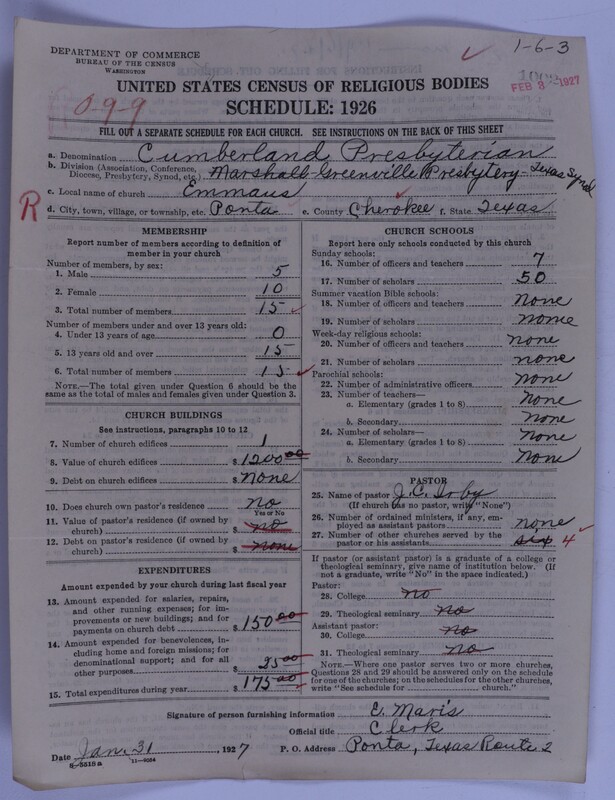 DEPARTMENT OF COMMERCE
BUREAU OF THE CENSUS
WASHINGTON
1-6-3
FEB 3 1927
099
UNITED STATES CENSUS OF RELIGIOUS BODIES
SCHEDULE: 1926
FILL OUT A SEPARATE SCHEDULE FOR EACH CHURCH. SEE INSTRUCTIONS ON THE BACK OF THIS SHEET
a. Denomination Cumberland Presbyterian
b. Division (Association, Conference, Diocese, Presbytery, Synod, etc.) Marshall-Greenville Presbytery-Texas Synod
c. Local name of church Emmaus
R
d. City, town, village, or township, etc. Ponta e. County Cherokee f. State Texas
MEMBERSHIP
Report number of members according to definition of
member in your church
Number of members, by sex:
1. Male 5
2. Female 10
3. Total number of members 15
Number of members under and over 13 years old:
4. Under 13 years of age 0
5. 13 years old and over 15
6. Total number of members 15
NOTE.—The total given under Question 6 should be the
same as the total of males and females given under Question 3.
CHURCH BUILDINGS
See instructions, paragraphs 10 to 12
7. Number of church edifices 1
8. Value of church edifices $ 1200.00
9. Debt on church edifices $ None
10. Does church own pastor's residence? no
Yes or No
11. Value of pastor's residence (if owned by
church) $ no
12. Debt on pastor's residence (if owned by
church) $ none
EXPENDITURES
Amount expended by your church during last fiscal year
13. Amount expended for salaries, repairs,
and other running expenses; for im-
provements or new buildings; and for
payments on church debt $ 150.00
14. Amount expended for benevolences, in-
cluding home and foreign missions; for
denominational support; and for all
other purposes $ 25.00
15. Total expenditures during year $ 175.00
CHURCH SCHOOLS
Report here only schools conducted by this church
Sunday schools:
16. Number of officers and teachers 7
17. Number of scholars 50
Summer vacation Bible schools:
18. Number of officers and teachers none
19. Number of scholars none
Week-day religious schools:
20. Number of officers and teachers none
21. Number of scholars none
Parochial schools:
22. Number of administrative officers none
23. Number of teachers—
a. Elementary (grades 1 to 8) none
b. Secondary none
24. Number of scholars—
a. Elementary (grades 1 to 8) none
b. Secondary none
PASTOR
25. Name of pastor J. C. Irby
(If church has no pastor, write "None")
26. Number of ordained ministers, if any, em-
ployed as assistant pastors none
27. Number of other churches served by the
pastor or his assistants six 4
If pastor (or assistant pastor) is a graduate of a college or
theological seminary, give name of institution below. (If
not a graduate, write "No" in the space indicated.)
Pastor:
28. College no
29. Theological seminary no
Assistant pastor:
30. College no
31. Theological seminary no
NOTE.—Where one pastor serves two or more churches,
Questions 28 and 29 should be answered only on the schedule
for one of the churches; on the schedules for the other churches,
write "See schedule for church."
Signature of person furnishing information E. Maris
Official title Clerk
Date Jan. 31, 1927 P. O. Address Ponta, Texas Route 2
8-5518a 11-9264